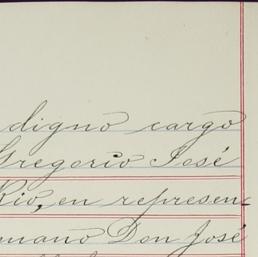 digno cargo
Gregorio José
Rio, en represen-
mano Don José